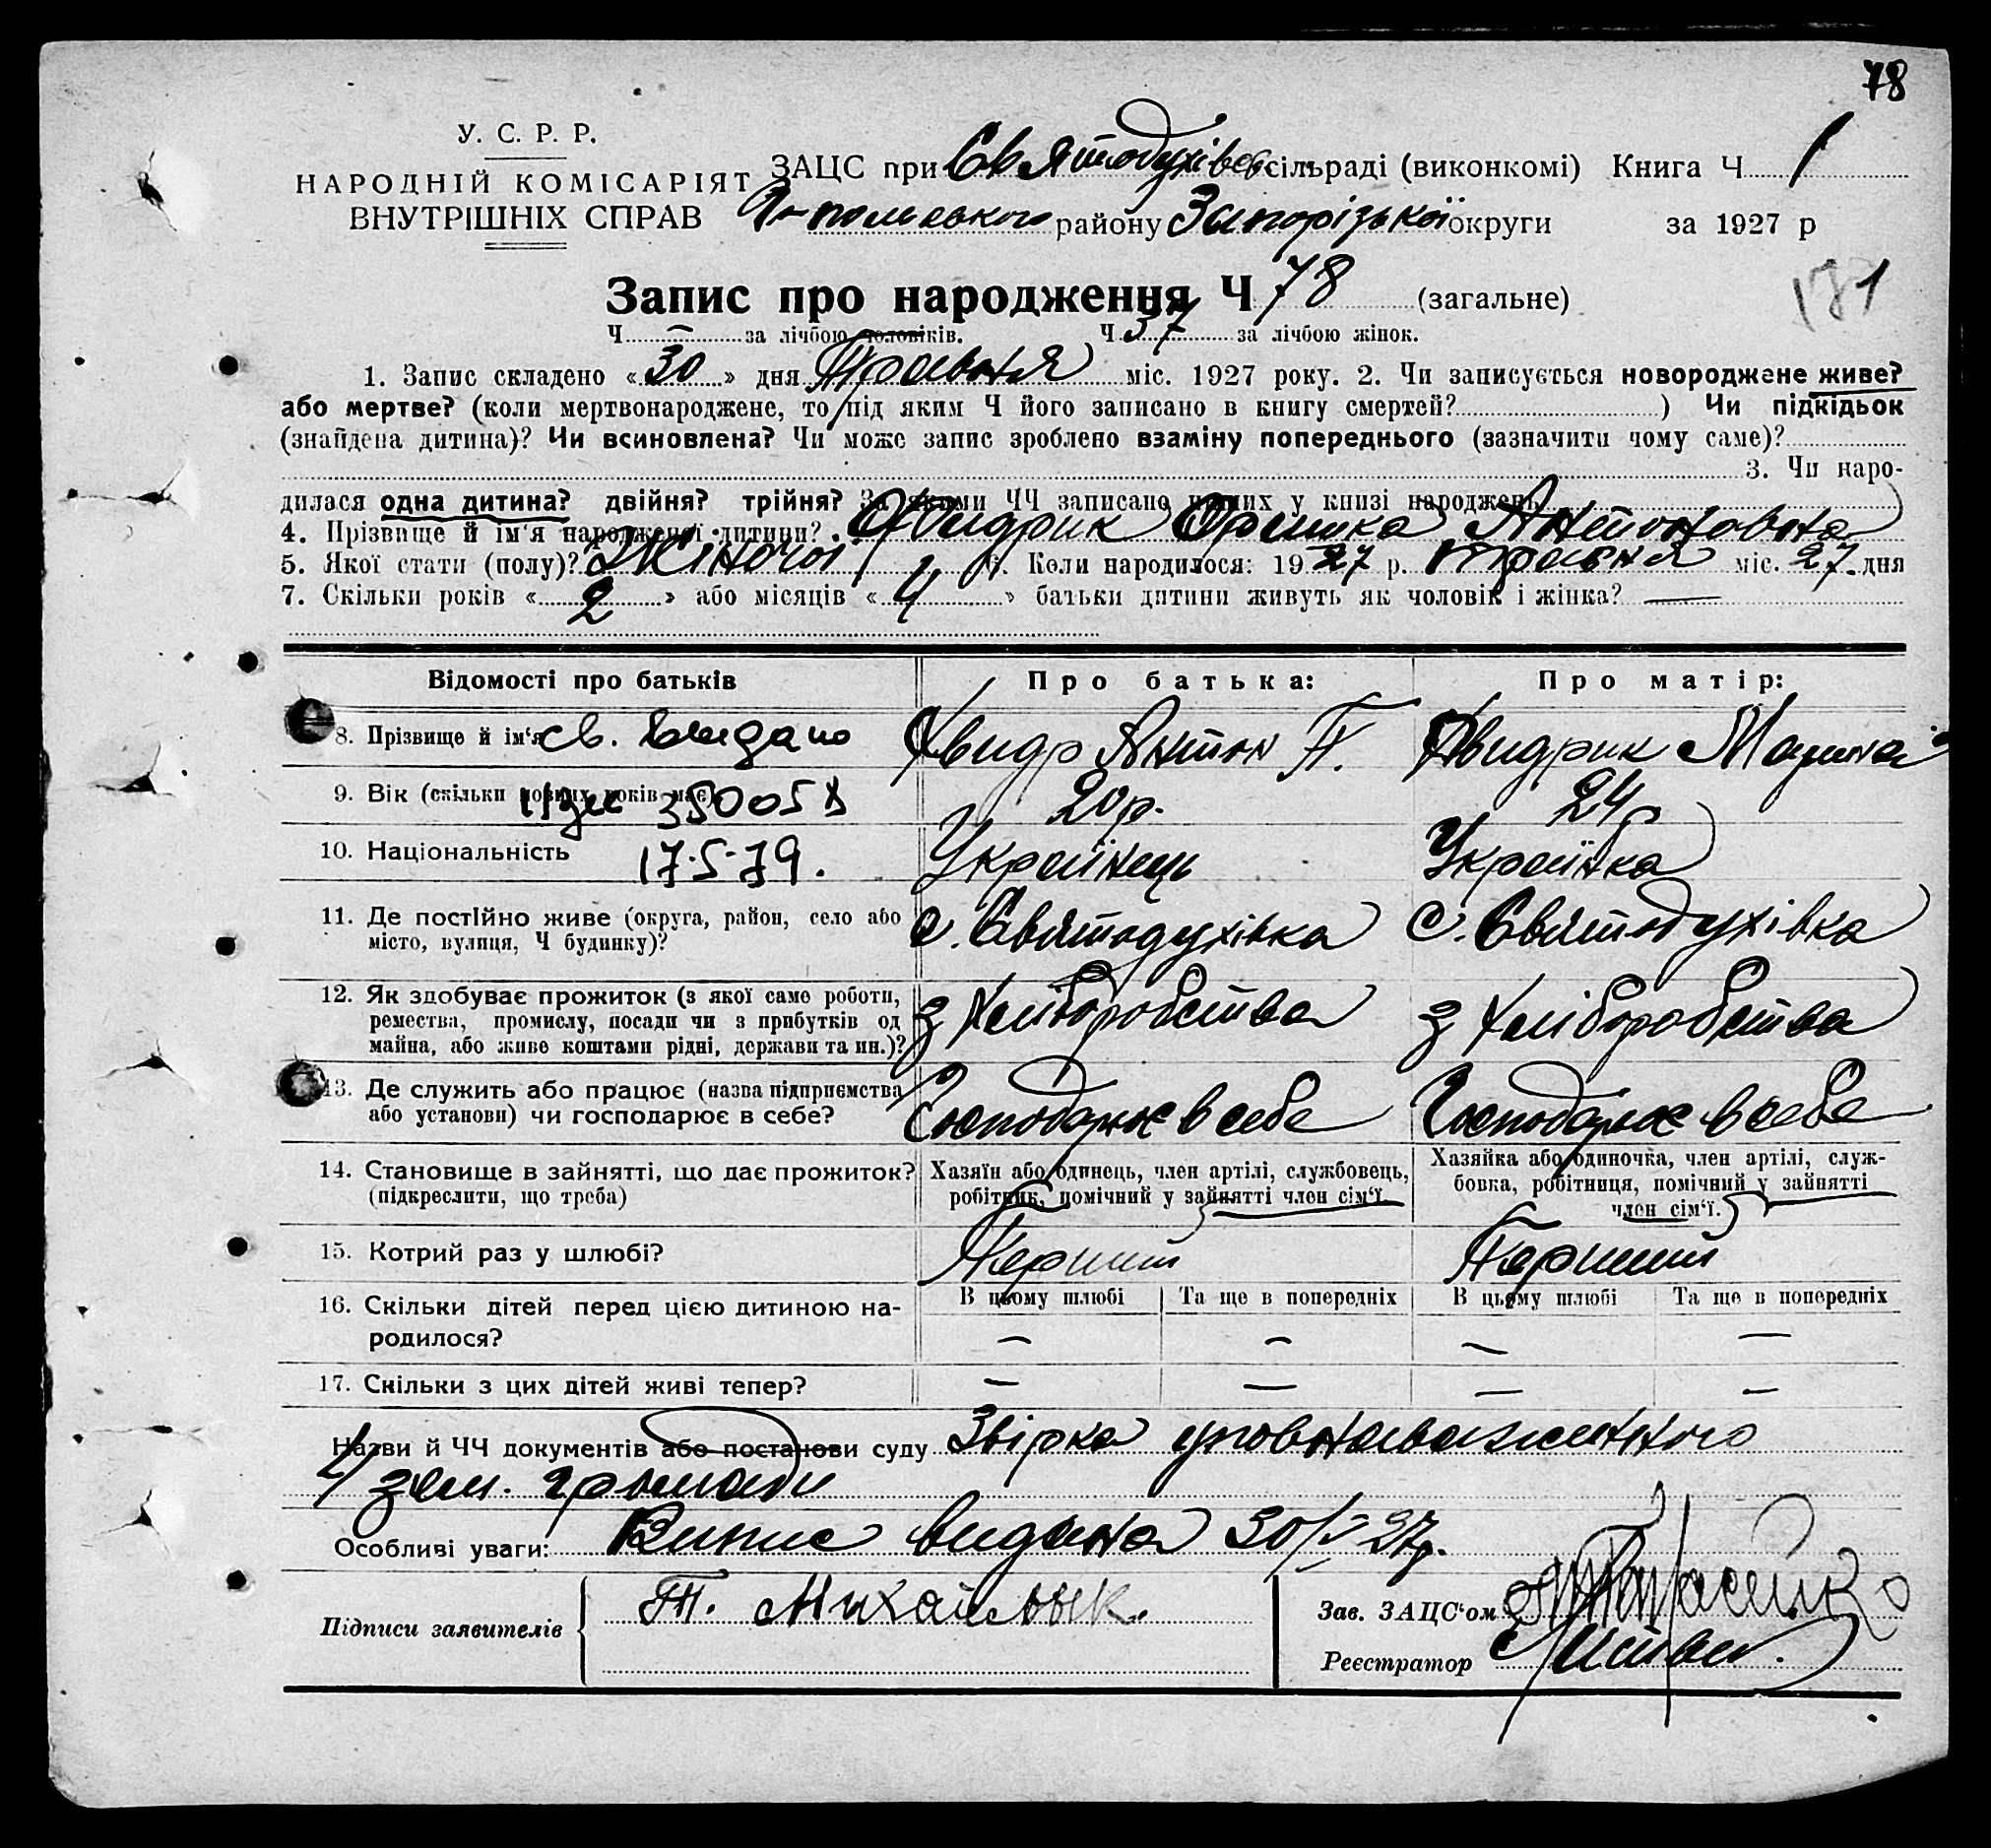 78
У. С. Р. Р.
НАРОДНІЙ КОМІСАРІЯТ
ВНУТРІШНІХ СПРАВ
ЗАЦС при Святодухівсь сільраді (виконкомі) Книга Ч 1
району Запорізької округи за 1927 р
171
Запис про народження Ч 78 (загальне)
Ч — за лічбою чоловіків. Ч 37 за лічбою жінок.
1. Запис складено «30» дня Травня міс. 1927 року. 2. Чи записується новороджене живе?
або мертве? (коли мертвонароджене, то під яким Ч його записано в книгу смертей? ) Чи підкідьок
(знайдена дитина)? Чи всиновлена? Чи може запис зроблено взаміну попереднього (зазначити чому саме)?
3. Чи наро-
дилася одна дитина? двійня? трійня? За якими ЧЧ записано инших у книзі народжень
4. Прізвище й ім'я народженої дитини? Хвидрик Оришка Антоновна
5. Якої стати (полу)? Жіночої 6. Коли народилося: 1927 р. травня міс. 27 дня
7. Скільки років «2» або місяців «4» батьки дитини живуть як чоловік і жінка? —
Відомості про батьків Про батька: Про матір:
8. Прізвище й ім'я Хвидр Антон П. Хвидрик Марина
св. видано
9. Вік (скільки повних років має) 20 р. 24
350058
10. Національність Українець Українка
17.5.79.
11. Де постійно живе (округа, район, село або
місто, вулиця, Ч будинку)? с. Святодухівка с. Святодухівка
12. Як здобуває прожиток (з якої саме роботи,
ремества, промислу, посади чи з прибутків од
майна, або живе коштами рідні, держави та ин.)? з хліборобства з хліборобства
13. Де служить або працює (назва підприємства
або установи) чи господарює в себе? Господарює в себе Господарює в себе
14. Становище в зайнятті, що дає прожиток?
(підкреслити, що треба)
Хазяїн або одинець, член артілі, службовець,
робітник, помічний у зайнятті член сім'ї.
Хазяйка або одиночка, член артілі, служ-
бовка, робітниця, помічний у зайнятті
член сім'ї.
15. Котрий раз у шлюбі? Перший Перший
16. Скільки дітей перед цією дитиною на-
родилося?
В цьому шлюбі Та ще в попередніх В цьому шлюбі Та ще в попередніх
— — — —
17. Скільки з цих дітей живі тепер? — — — —
Назви й ЧЧ документів або постанови суду Звірка уповнаваженного
зем. громади
Особливі уваги: Випис видана 30/V 27р.
Підписи заявителів Т. Михайлык.
Зав. ЗАЦС'ом
Реєстратор